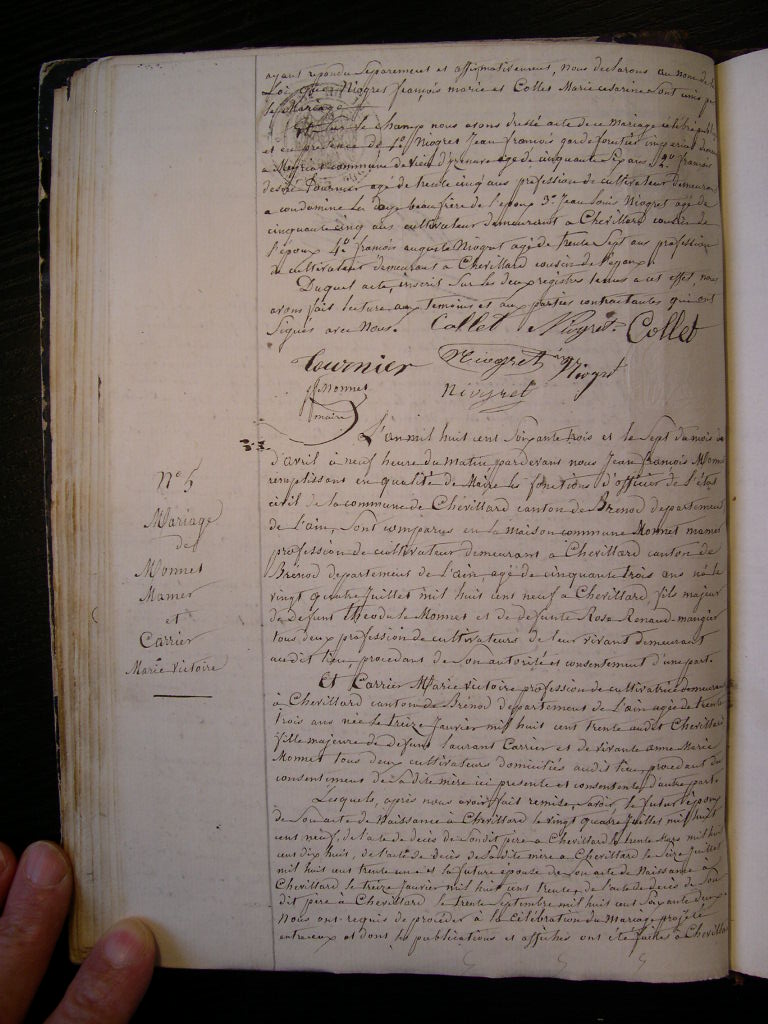 ayant repondu Separement et affirmativement, nous declarons au nom de la
Loi que Niogret françois marie et Collet Marie cesarine sont unis par
le Mariage
Et Sur le champ nous avons dressé acte de ce Mariage célébré
et en presence de 1º Niogret Jean françois garde forestier imperial
a Meyriat commune de vieu d'izenave agé de cinquante ans 2º françois
desiré Tournier agé de trente cinq ans profession de cultivateur demeurant
a condamine la Doye beau frère de l'epoux 3º Jean Louis Niogret agé de
cinquante cinq ans cultivateur demeurant a Chevillard cousin de
l'époux 4º françois auguste Niogret agé de trente Sept ans profession
de cultivateur demeurant a Chevillard cousin de l'epoux
Duquel acte, inscrit Sur les deux registres tenus a cet effet, nous
avons fait lecture aux temoins et aux parties contractantes qui ont
Signés avec Nous. Collet Niogret Collet
Tournier Niogret Niogret
Monnet Niogret
maire
L'an mil huit cent Soixante trois et le Sept du mois
d'avril à neuf heure du Matin pardevant nous Jean françois Monnet
remplissant en qualité de Maire les fonctions d'officier de l'état
civil de la commune de Chevillard canton de Brénod departement
de L'ain, Sont comparus en la maison commune Monnet mamer
profession de cultivateur demeurant a Chevillard canton de
Brénod departement de L'ain, agé de cinquante trois ans né le
vingt quatre Juillet mil huit cent neuf a Chevillard, fils majeur
de defunt Theodule Monnet et de defunte Rose Renaud
tous deux profession de cultivateurs de leur vivant demeurant
audit lieu, procedant de Son autorité et consentement d'une part.
Et Carrier Marie victoire profession de cultivatrice demeurant
à Chevillard canton de Brénod departement de L'ain agée de trente
trois ans née le treize Janvier mil huit cent trente audit Chevillard
fille majeure de defunt laurant Carrier et de vivante anne Marie
Monnet tous deux cultivateurs domiciliés audit lieu, procedant du
consentement de sa dite mère ici presente et consentente, d'autre part.
Lesquels, après nous avoir fait remise, Savoir, le futur époux
de Son acte de Naissance à Chevillard le vingt quatre Juillet mil huit
cent neuf, de l'acte de decès de Sondit père a Chevillard le trente mil huit
cent dix huit, de l'acte de decès de Sa dite mère a Chevillard le Seize Juillet
mil huit cent trente une et la future épouse de Son acte de Naissance à
Chevillard le treize Janvier mil huit cent trente, de l'acte de decès de Son
dit père à Chevillard le trente Septembre mil huit cent Soixante deux.
Nous ont requis de procéder à la célébration du Mariage projeté
entr'eux et dont les publications et affiches ont été faites a Chevillard
Nº 5
Mariage
de
Monnet
Mamer
et
Carrier
Marie victoire